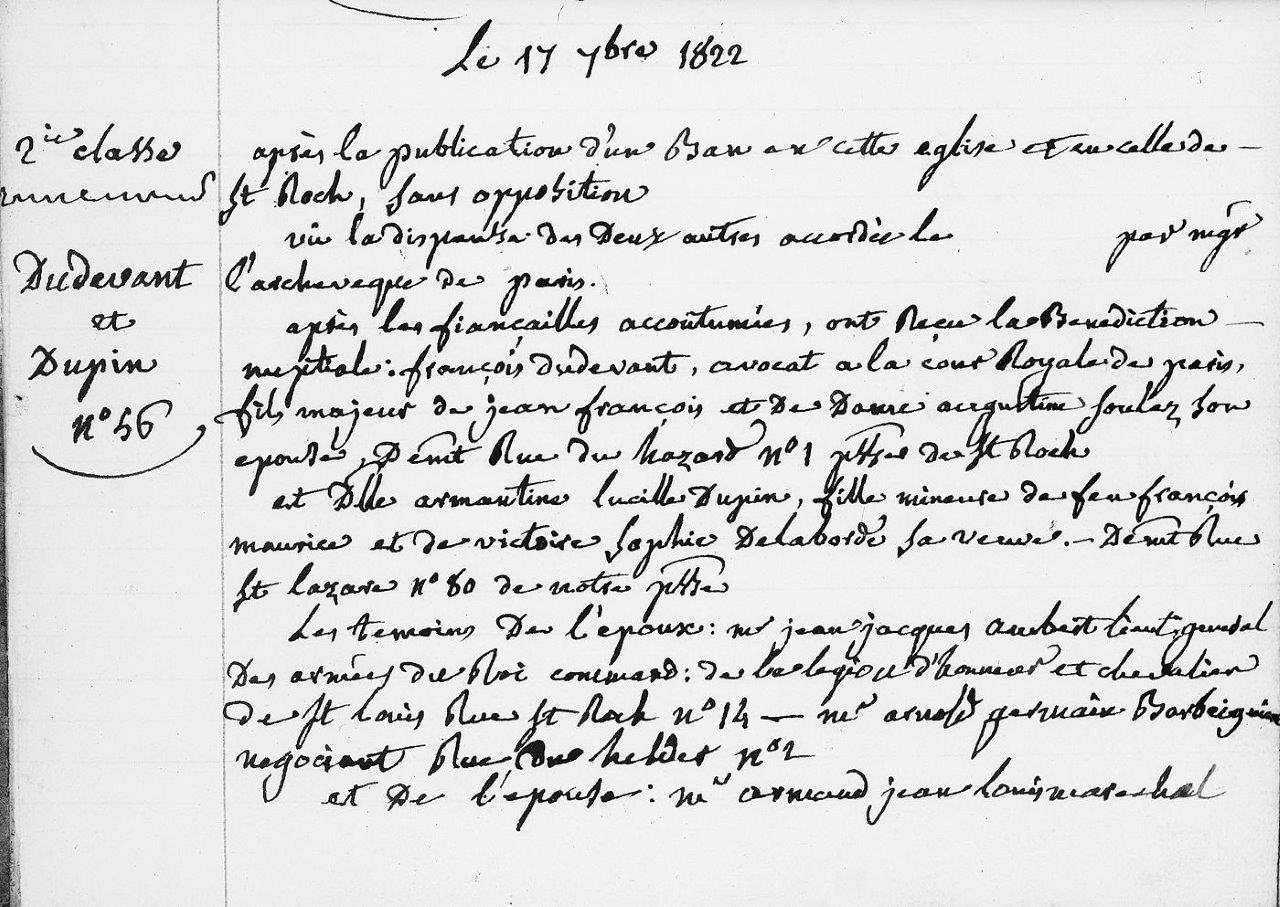 Le 17 7bre 1822
2ie classe
Dudevant
et
Dupin
n° 56
après la publication d'un Ban en cette eglise et en celle de —
St Roch, sans opposition
vû la dispense des Deux autres accordée le par mgr
l'archeveque de paris.
après les fiançailles accoutumées, ont Reçu la Benediction —
nuptiale : françois dudevant, avocat a la cour Royale de paris,
fils majeur de jean françois et De Dame augustine soulez son
epouse, Demt Rue du hazard n° 1 psse de St Roch
et Dlle armantine lucille Dupin, fille mineure de feu françois
maurice et de victoire sophie Delaborde sa veuve. — Demt Rue
St lazare n° 80 de notre psse
Les temoins De l'epoux : mr jean jacques aubert lieut. general
Des armées du Roi command : de la legion d'honneur et chevalier
de St louis Rue St Roch n° 14 — mr arnold germain
negociant Rue du helder n° 2
et De l'epouse : mr armand jean louis marechal